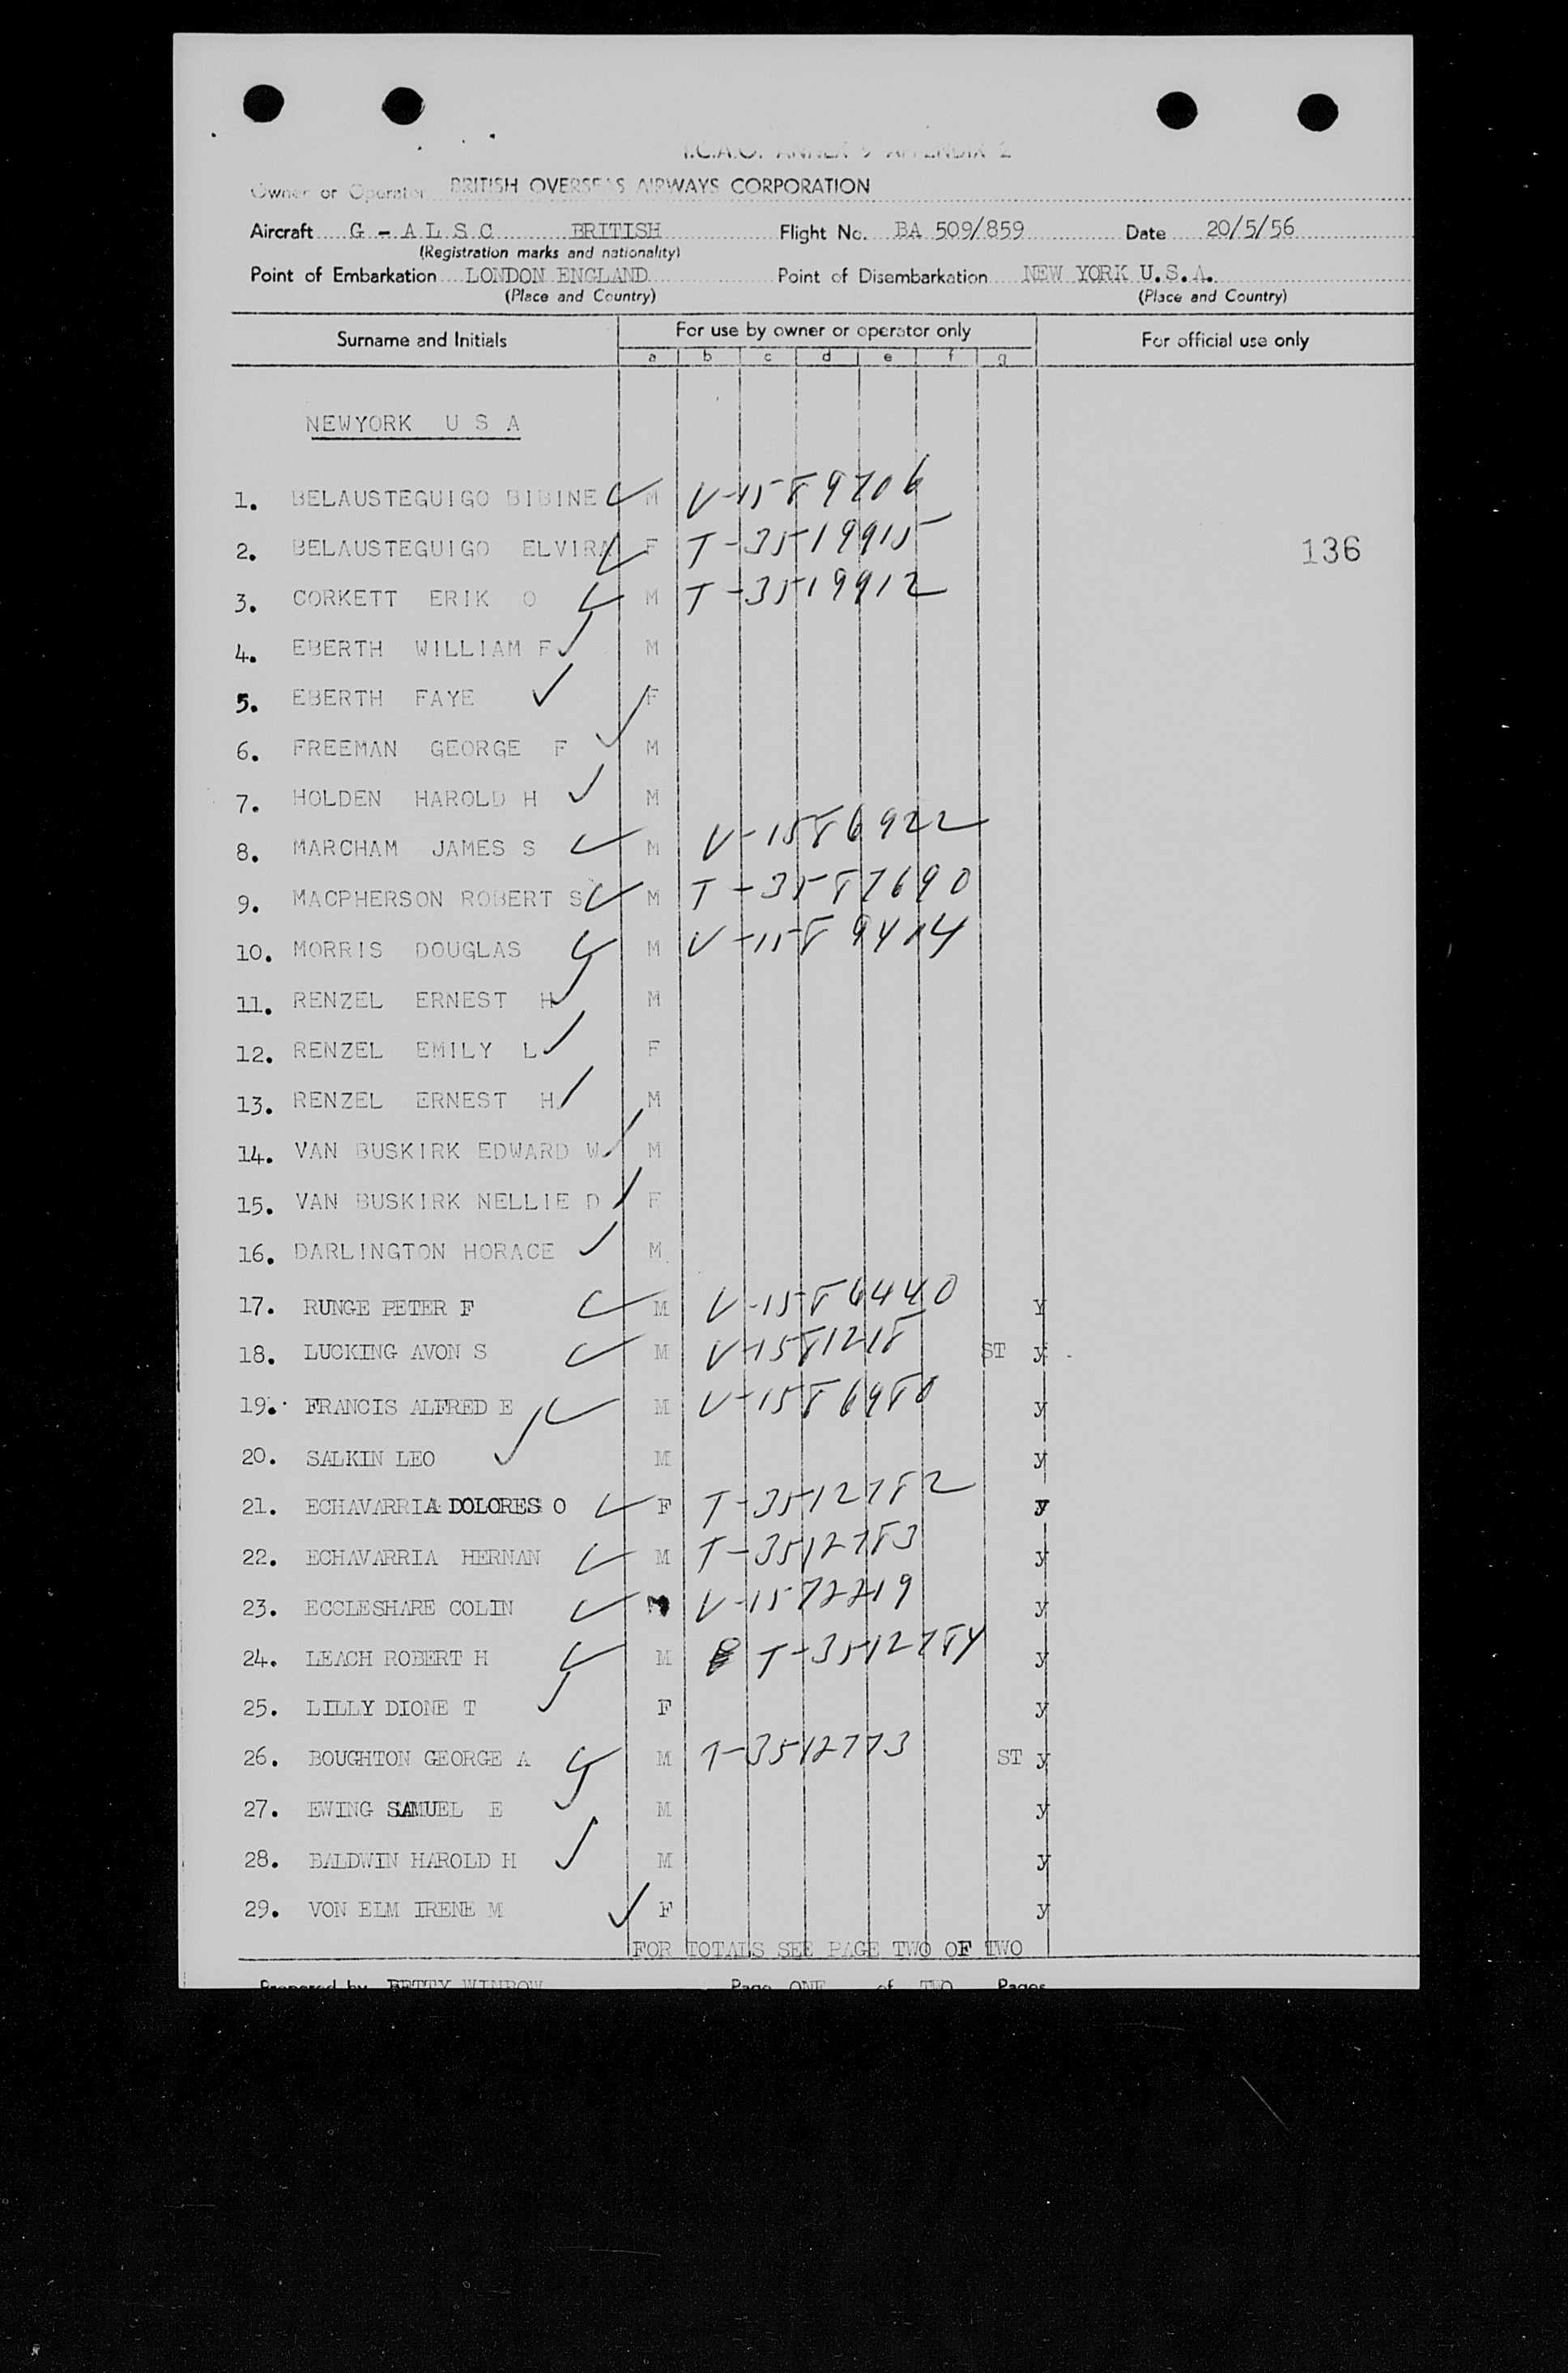 I.C.A.O. ANNEX 9 APPENDIX 2
Owner or Operator BRITISH OVERSEAS AIRWAYS CORPORATION
Aircraft G - A L S C BRITISH Flight No. BA 509/859 Date 20/5/56
(Registration marks and nationality)
Point of Embarkation LONDON ENGLAND Point of Disembarkation NEW YORK U.S.A.
(Place and Country) (Place and Country)
Surname and Initials For use by owner or operator only For official use only
a b c d e f g
NEWYORK U S A
1. BELAUSTEGUIGO BIBINE M V-1589706
2. BELAUSTEGUIGO ELVIRA F T-3519915
136
3. CORKETT ERIK O M T-3519912
4. EBERTH WILLIAM F M
5. EBERTH FAYE F
6. FREEMAN GEORGE F M
7. HOLDEN HAROLD H M
8. MARCHAM JAMES S M V-1586922
9. MACPHERSON ROBERT S M T-3587690
10. MORRIS DOUGLAS M V-1589414
11. RENZEL ERNEST H M
12. RENZEL EMILY L F
13. RENZEL ERNEST H M
14. VAN BUSKIRK EDWARD W M
15. VAN BUSKIRK NELLIE D F
16. DARLINGTON HORACE M
17. RUNGE PETER F M V-1586440 Y
18. LUCKING AVON S M V-1581218 ST y
19. FRANCIS ALFRED E M V-1586980 y
20. SALKIN LEO M y
21. ECHAVARRIA DOLORES O F T-3512782 y
22. ECHAVARRIA HERNAN M T-3512783 y
23. ECCLESHARE COLIN M V-1572219 y
24. LEACH ROBERT H M T-3512784 y
25. LILLY DIONE T F y
26. BOUGHTON GEORGE A M T-3512773 ST y
27. EWING SAMUEL E M y
28. BALDWIN HAROLD H M y
29. VON ELM IRENE M F y
FOR TOTALS SEE PAGE TWO OF TWO
Prepared by BETTY WINROW Page ONE of TWO Pages